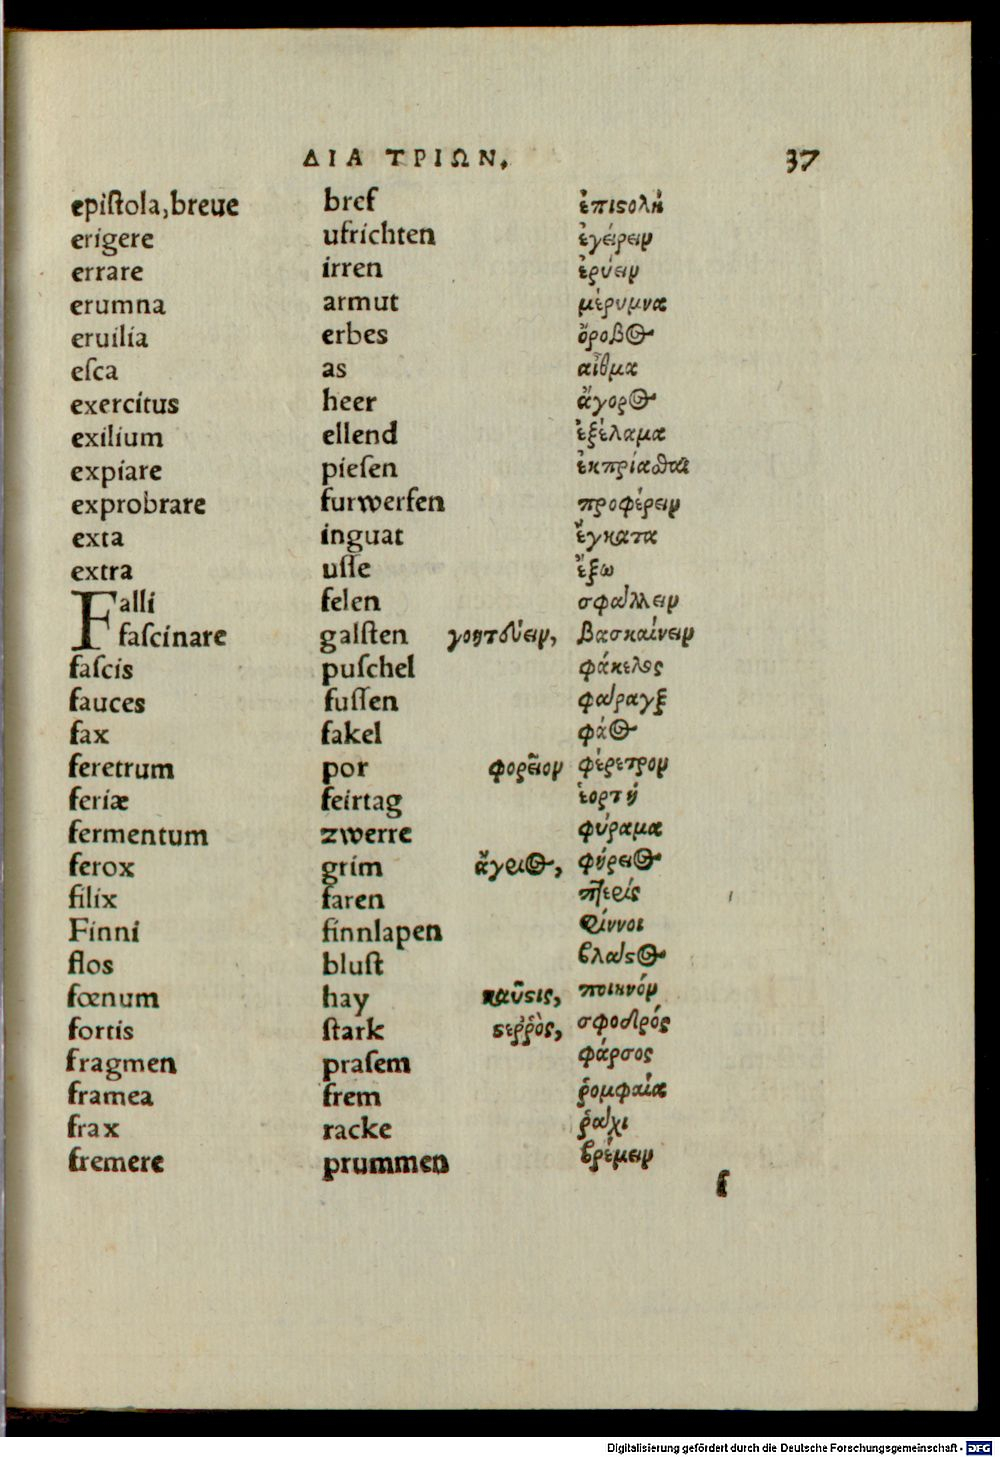 ΔΙΑ ΤΡΙΩΝ. 37
epiſtola,breue bref ἐπιϛολὴ
erigere ufrichten ἐγείρειν
errare irren ἐρύειν
erumna armut μέρυμνα
eruilia erbes ὄροβος
eſca as αἶθμα
exercitus heer ἄγορος
exilium ellend ἐξέλαμα
expiare pieſen ἐκπρίασθαι
exprobrare furwerfen προφέρειν
exta inguat ἔγκατα
extra uſſe ἔξω
Falli felen σφάλλειν
faſcinare galſten γοητεύειν, βασκαίνειν
faſcis puſchel φάκελος
fauces fuſſen φάραγξ
fax fakel φάος
feretrum por φορεῖον φέρετρον
feriæ feirtag ἑορτή
fermentum zwerre φύραμα
ferox grim ἄγριος, φήρειος
filix faren πτερίς
Finni finnlapen Φίννοι
flos bluſt βλάϛος
fœnum hay καῦσις, ποικνόν
fortis ſtark ϛεῤῥὸς, σφοδρός
fragmen praſem φάρσος
framea frem ῥομφαία
frax racke ῥάχι
fremere prummen βρέμειν
f
Digitalisierung gefördert durch die Deutsche Forschungsgemeinschaft - DFG